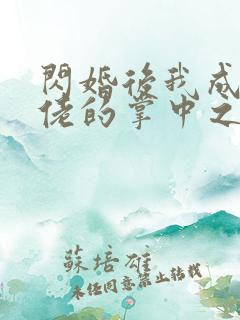 閃婚後我成
佬的掌中之
蘇培雄
未經同意禁止轉載